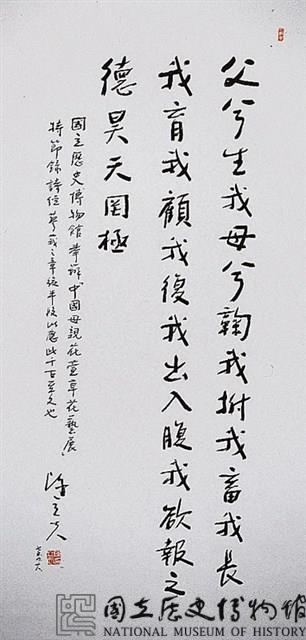 父兮生我母兮鞠我拊我畜我長
我育我顧我復我出入腹我欲報之
德昊天罔極
國立歷史博物館舉辦中國母親花萱草花藝展
特節錄詩經蓼莪之章後半段以應此千百至文也
七五、八、八
國立歷史博物館
NATIONAL MUSEUM OF HISTORY